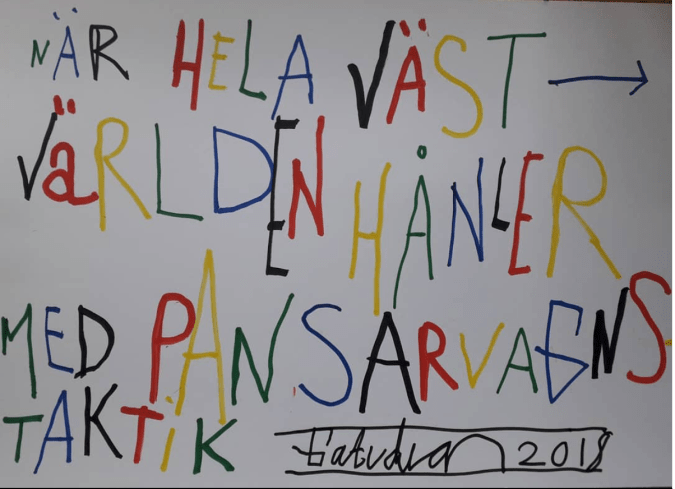 NÄR HELA VÄST →
VäRLDEN HÅNLER
MED PANSARVAGNS
TAKTiK
2018